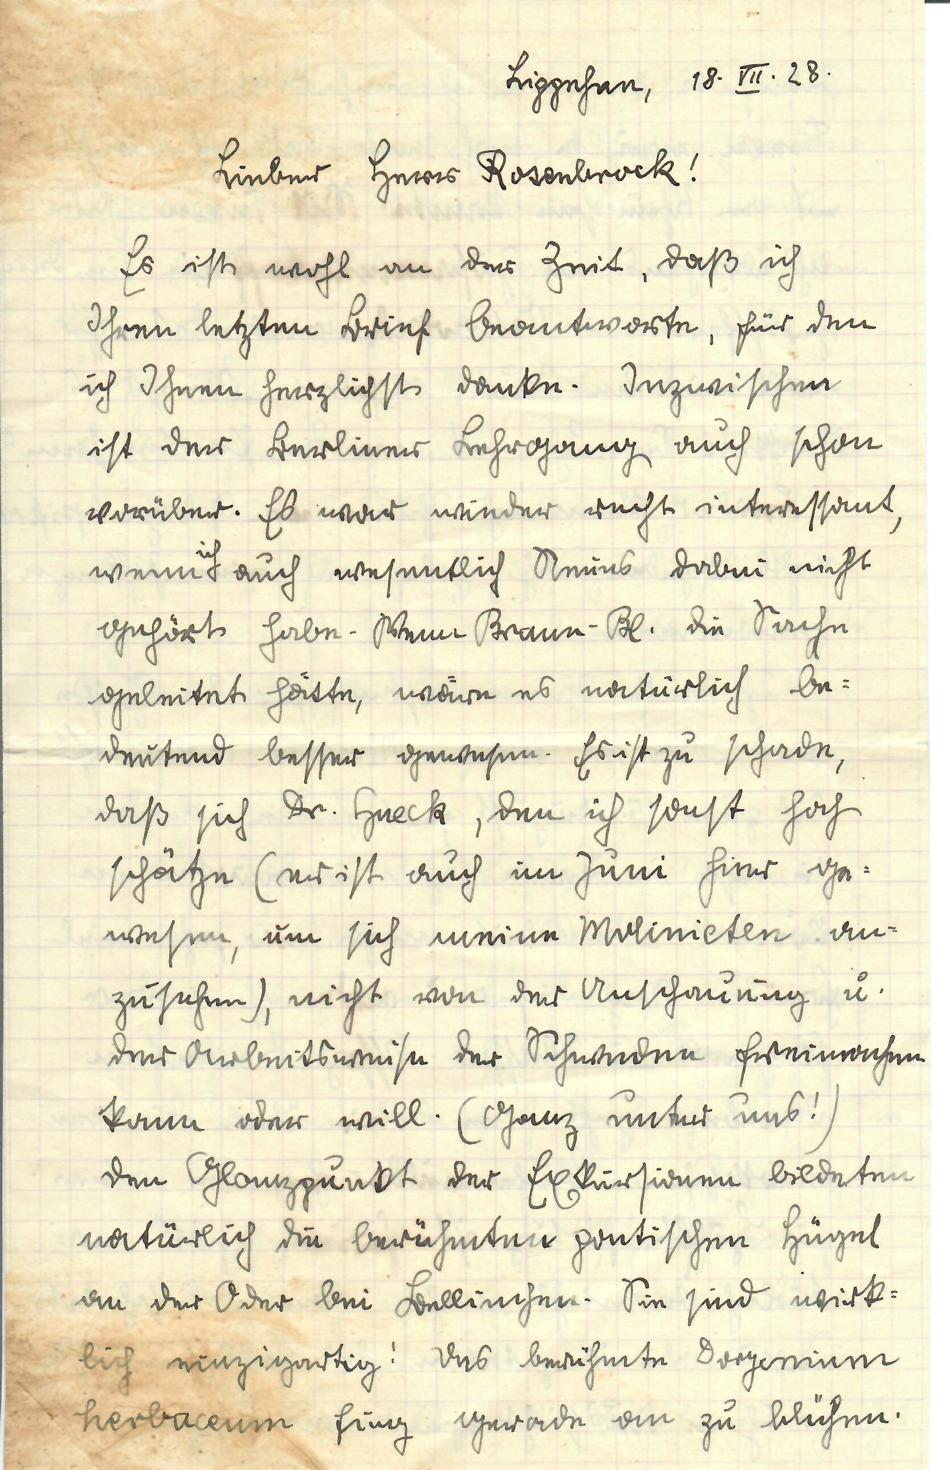 Lippehne, 18. VII. 28.
Lieber Herr Rosenbrock!
Es ist wohl an der Zeit, daß ich
Ihren letzten Brief beantworte, für den
ich Ihnen herzlichst danke. Inzwischen
ist der Berliner Lehrgang auch schon
vorüber. Es war wieder recht interessant,
wenn ich auch wesentlich Neues dabei nicht
gehört habe. Wenn Braun-Bl. die Sache
geleitet hätte, wäre es natürlich be=
deutend besser gewesen. Es ist zu schade,
daß sich Dr. Hueck, den ich sonst hoch
schätze (er ist auch im Juni hier ge=
wesen, um sich meine Molinieten an=
zusehen), nicht von der Anschauung u.
der Arbeitsweise der Schweden freimachen
kann oder will. (Ganz unter uns!)
Den Glanzpunkt der Exkursionen bildeten
natürlich die berühmten pontischen Hügel
an der Oder bei Bellinchen. Sie sind wirk=
lich einzigartig! Das berühmte Dorycnium
herbaceum fing gerade an zu blühen.